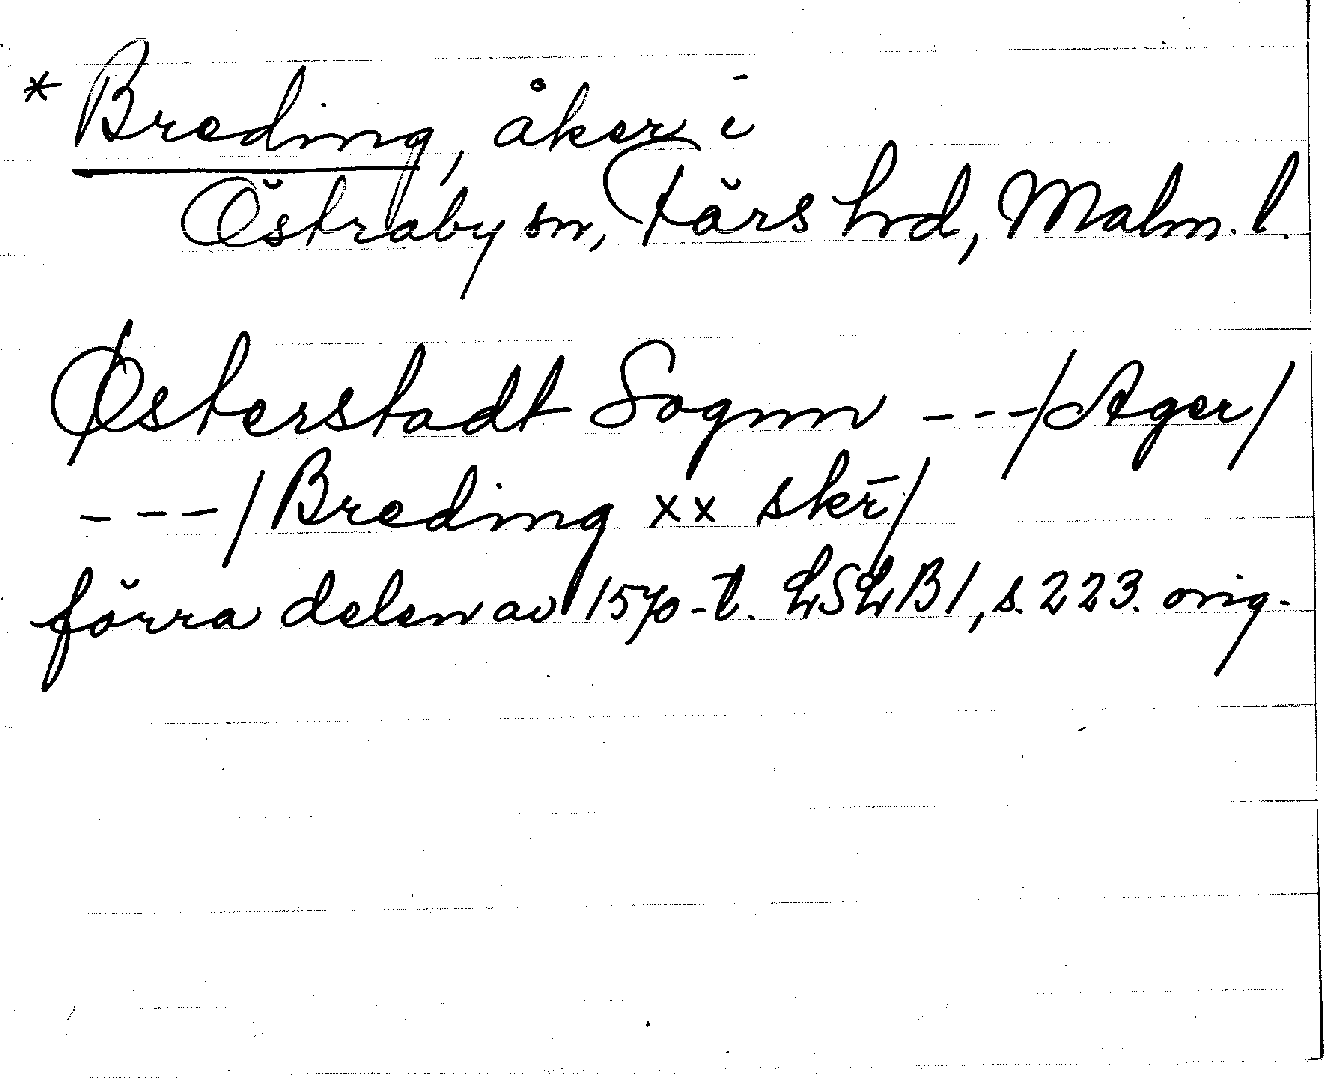 * Breding, åker i
Östraby sn, Färs hd, Malm. l.
Østerstadt Sognn --- / Ager /
--- / Breding xx skr̄ /
förra delen av 1570-t. LSLB1, s. 223. orig.